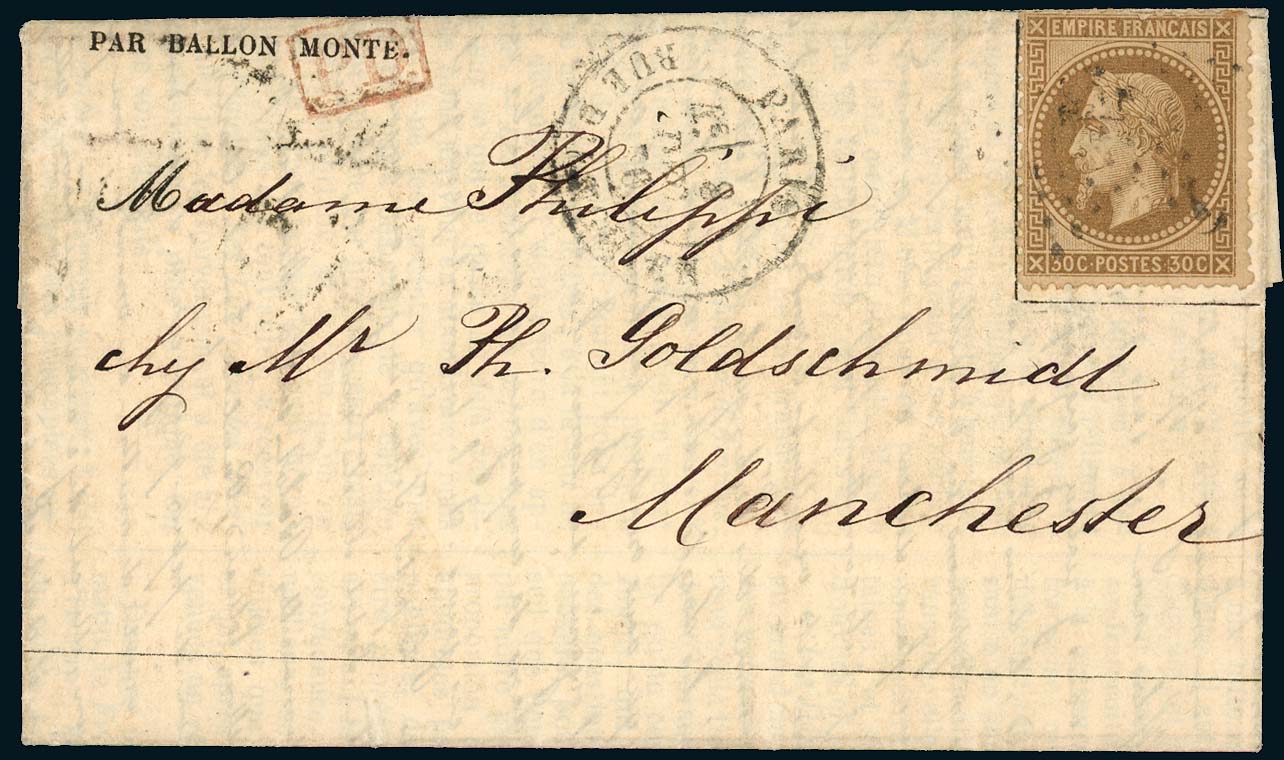 PAR BALLON MONTÉ.
P.D.
PARIS
RUE D
EMPIRE FRANÇAIS
30C·POSTES·30C
Madame Philippi
chy Mr Ph. Goldschmidt
Manchester